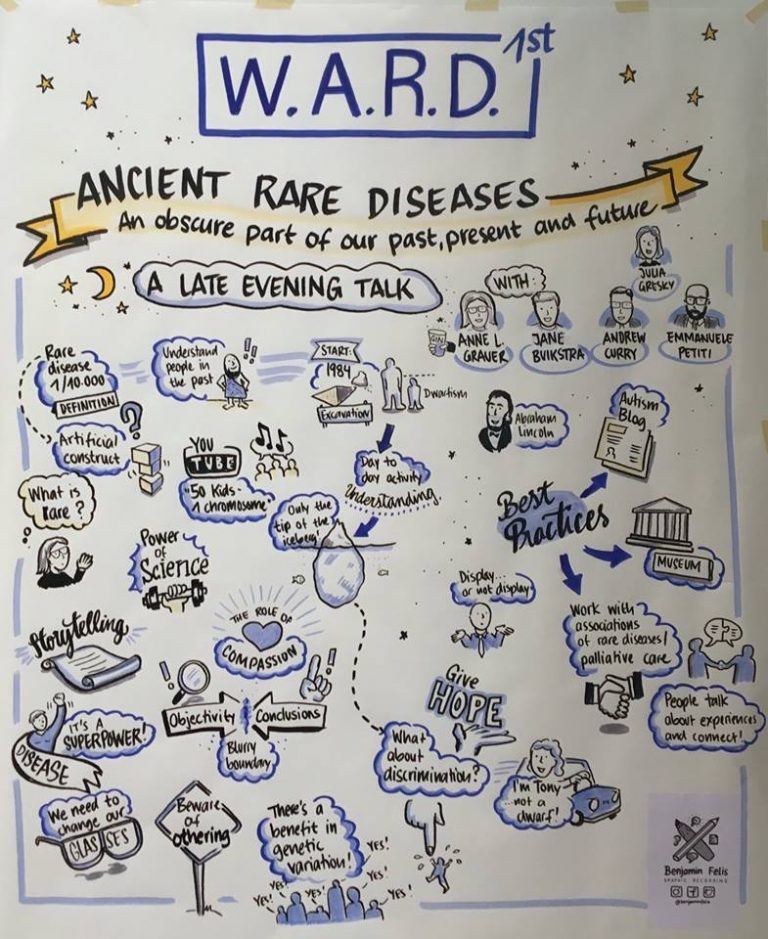 W.A.R.D. 1st
ANCIENT RARE DISEASES
An obscure part of our past, present and future
A LATE EVENING TALK
WITH:
JULIA
GRESKY
ANNE L.
GRAUER
JANE
BUIKSTRA
ANDREW
CURRY
EMMANUELE
PETITI
Rare
disease
1/10.000
DEFINITION
?
Artificial
construct
What is
Rare?
Understand
people in
the past
!!
START:
1984
Excavation
Dwarfism
Day to
day activity
Understanding
YOU
TUBE
"50 Kids-
1 chromosome"
Only the
tip of the
iceberg!
Power
of
Science
Abraham
Lincoln
Autism
Blog
Best
Practices
MUSEUM
Work with
associations
of rare diseases/
palliative care
People talk
about experiences
and connect!
Display...
...or not display
Storytelling
THE ROLE OF
COMPASSION
!
!
Objectivity
Conclusions
Blurry
boundary
IT'S A
SUPERPOWER!
DISEASE
Give
HOPE
What
about
discrimination?
I'm Tony
not a
dwarf!
We need to
change our
GLASSES
Beware
of
othering
There's a
benefit in
genetic
variation!
Yes!
Yes!
Yes!
Yes!
Yes!
Yes!
Benjamin Felis
GRAPHIC RECORDING
@benjaminfelis